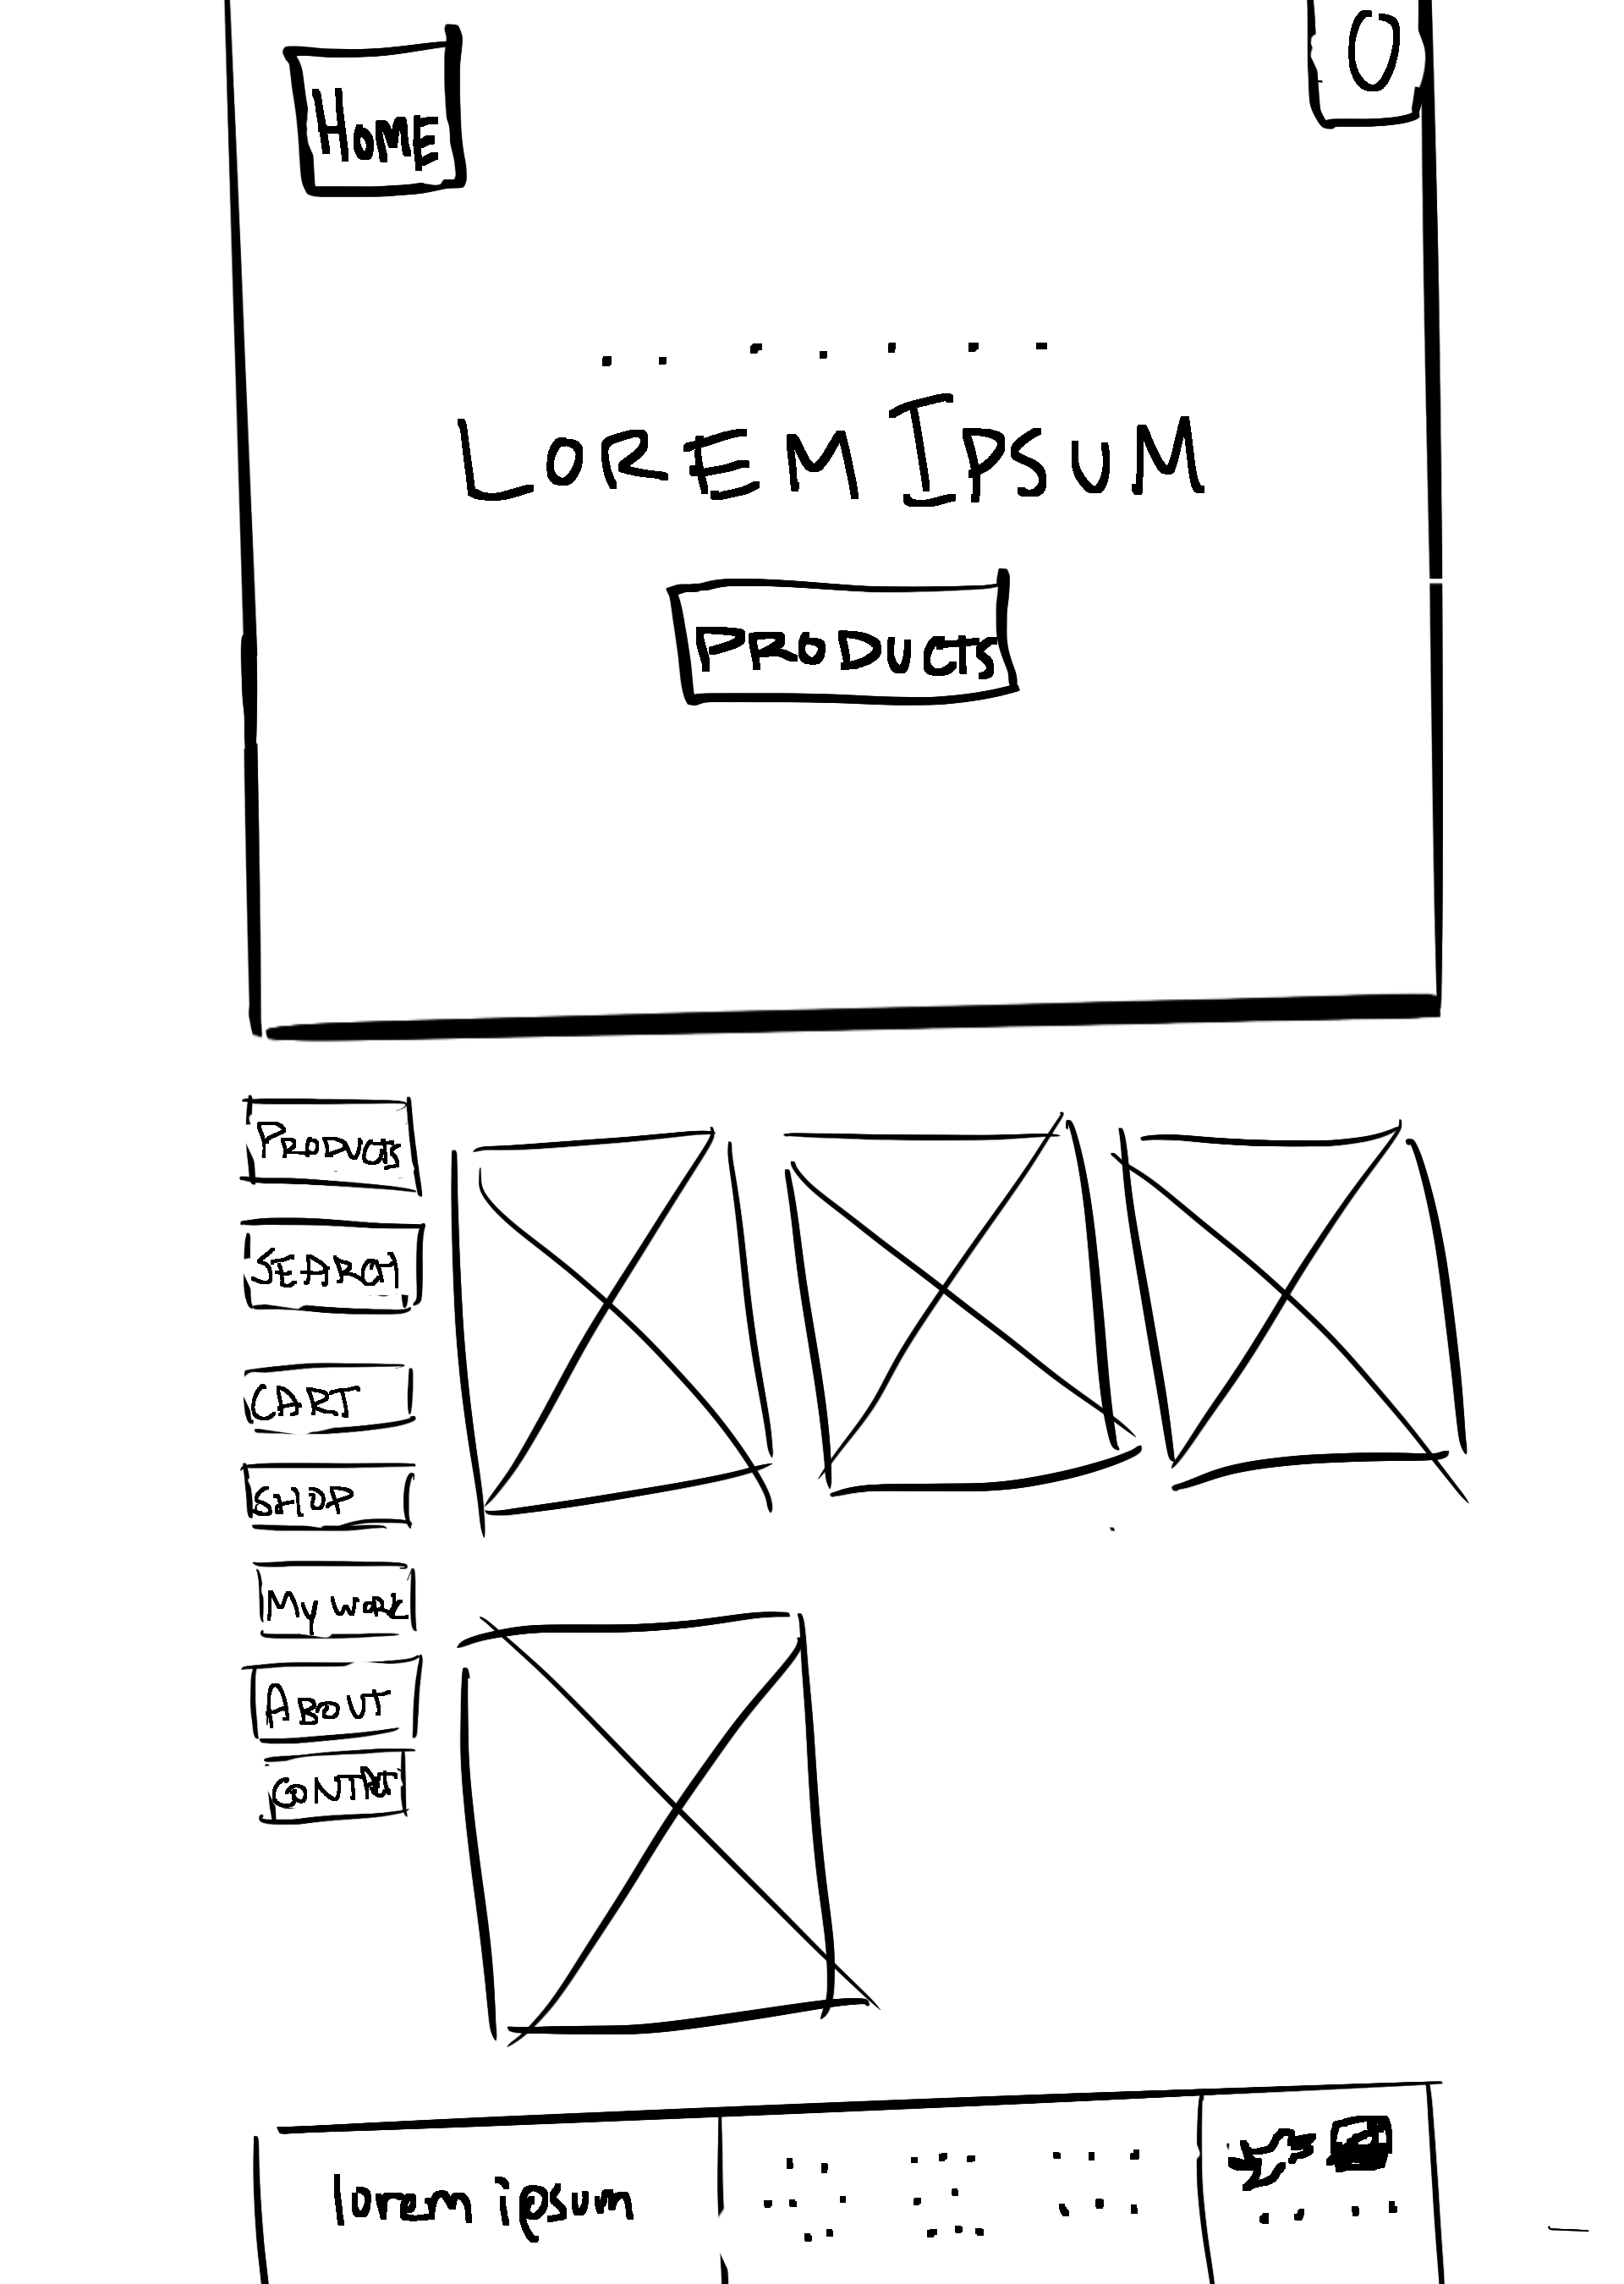 HOME
0
LOREM IPSUM
PRODUCTS
PRODUCTS
SEARCH
CART
SHOP
MY WORK
ABOUT
CONTACT
lorem ipsum